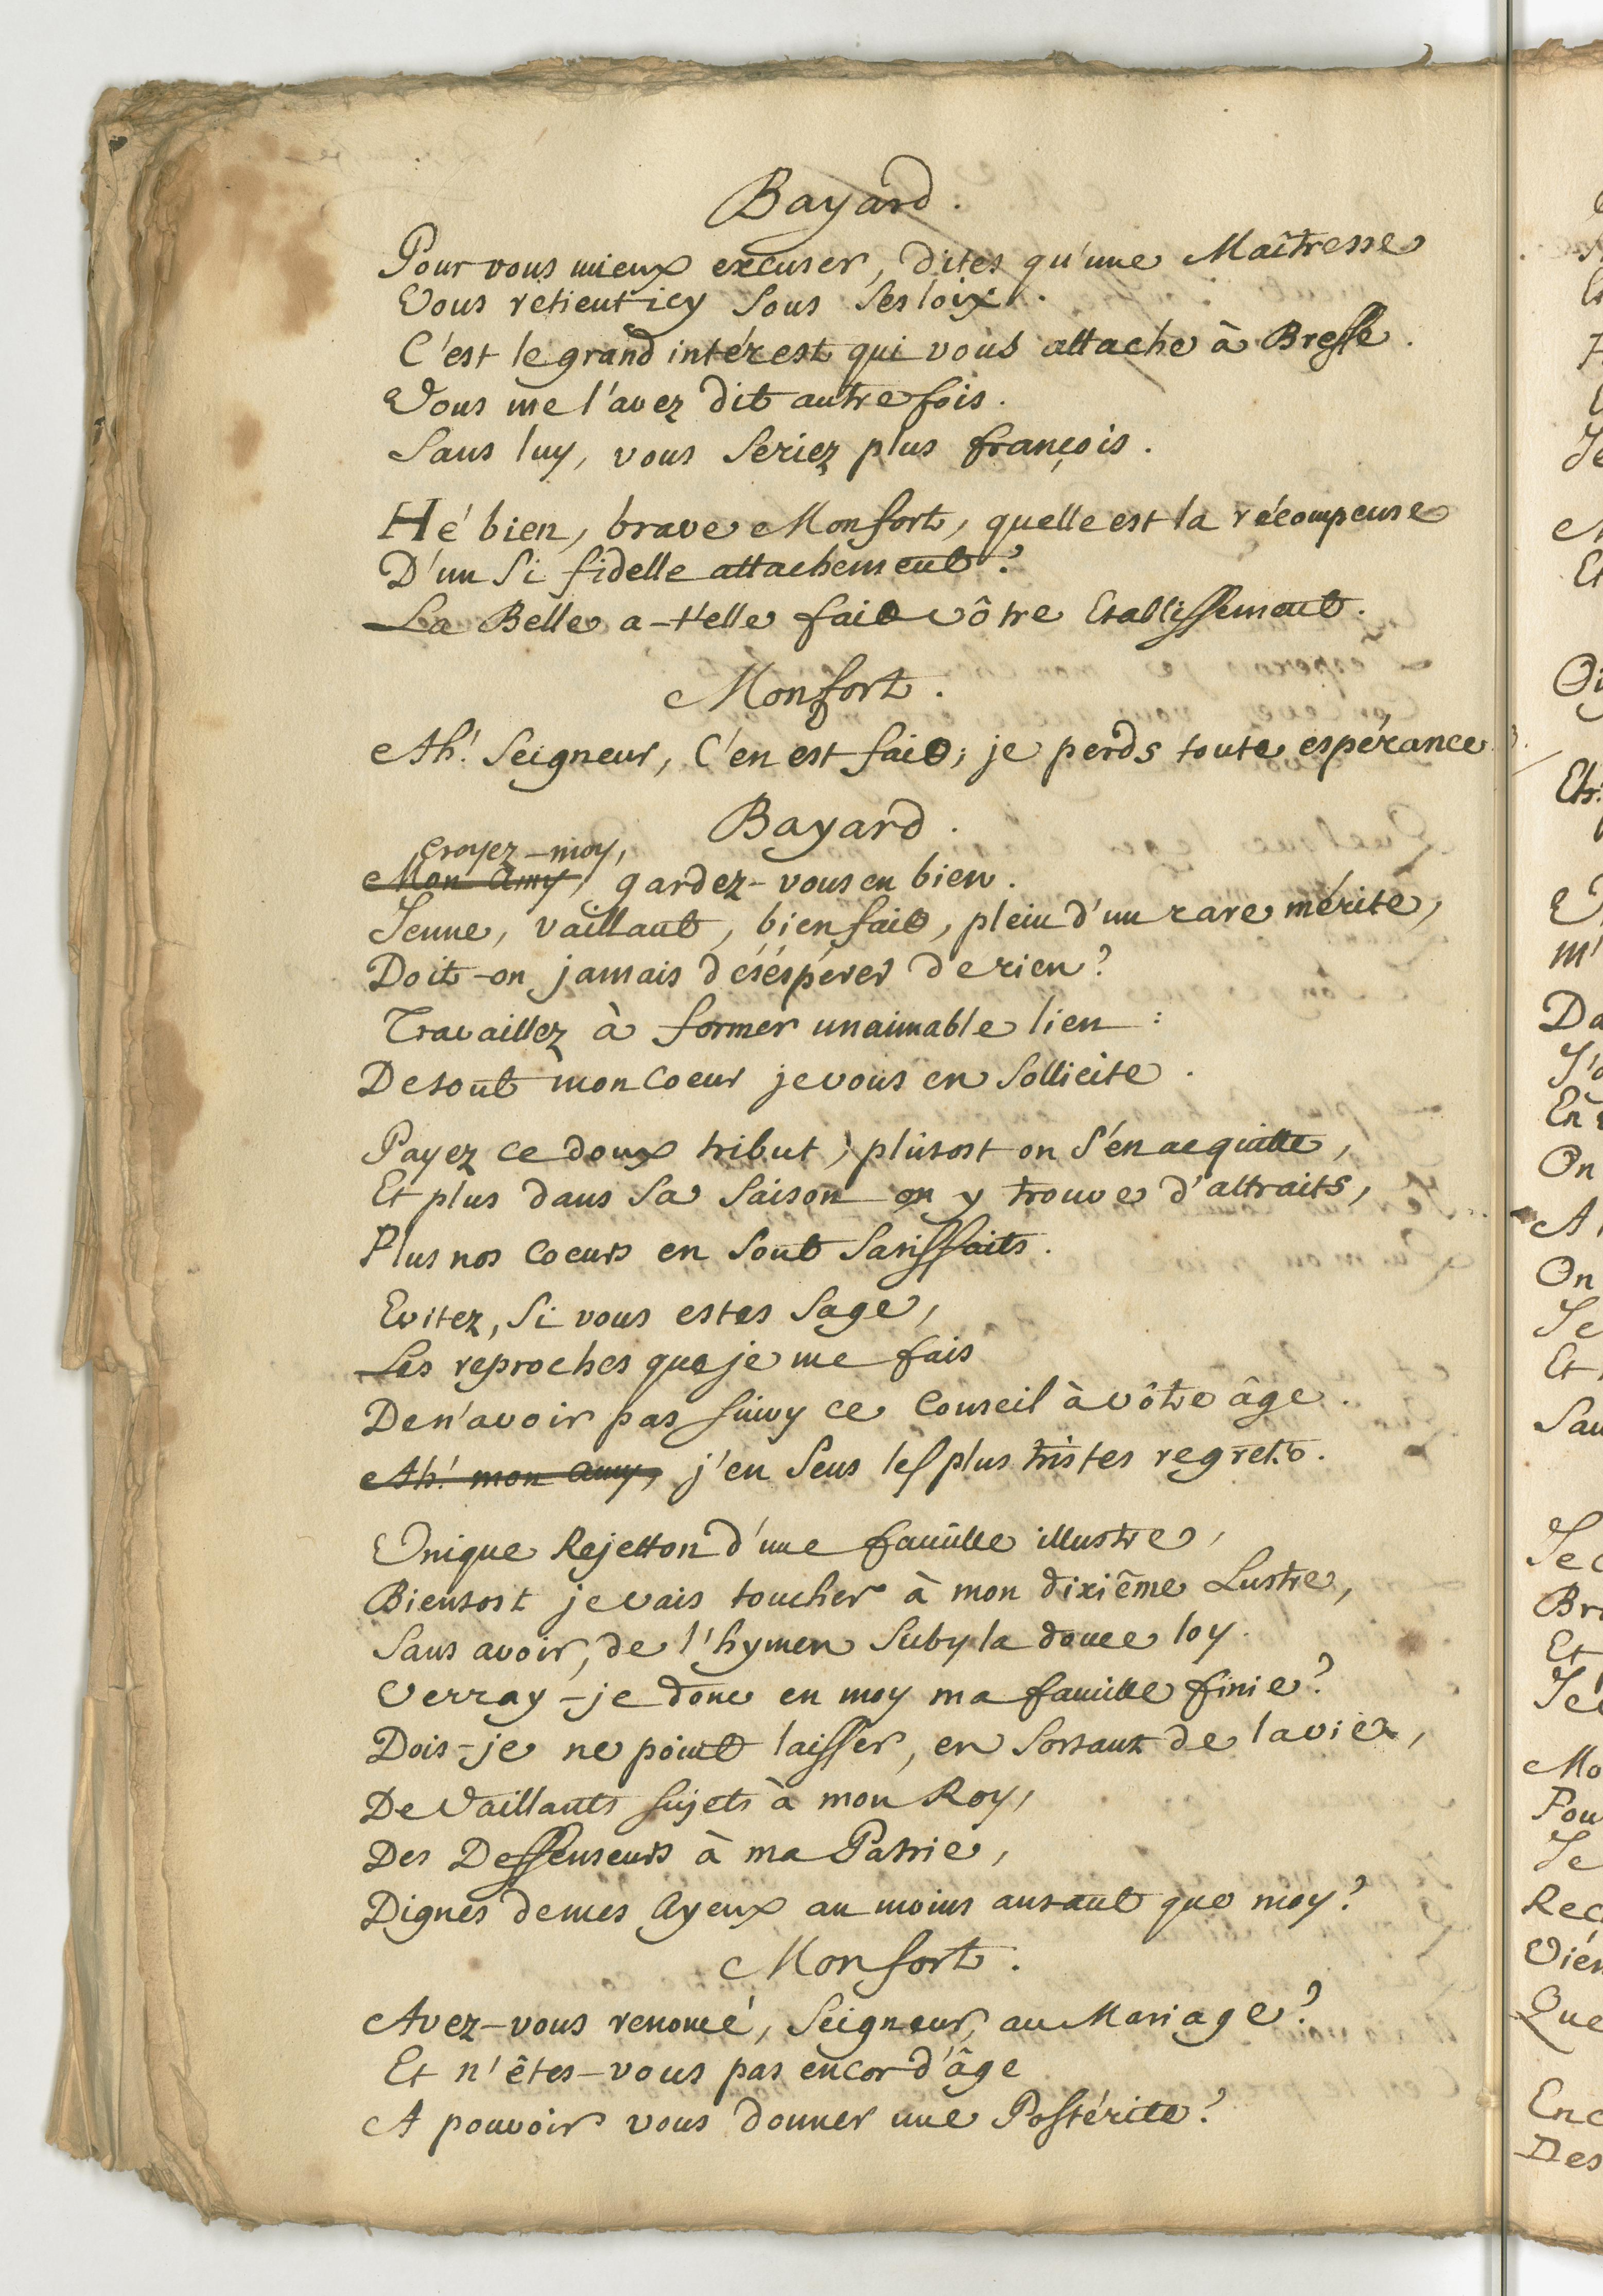 Bayard.
Pour vous mieux excuser, dites qu'une Maîtresse
Vous retient icy sous ses loix.
C'est le grand intérest qui vous attache à Bresse.
Vous me l'avez dit autrefois.
Sans luy, vous seriez plus françois.
Hé bien, brave Monfort, quelle est la récompense
D'un si fidelle attachement?
La Belle a-t'elle fait vôtre Etablissement.
Monfort.
Ah! Seigneur, C'en est fait; je perds toute espérance
Bayard.
croyez-moy,
Mon amy, gardez-vous en bien.
Jeune, vaillant, bien fait, plein d'un rare mérite,
Doit-on jamais désésperer de rien?
Travaillez à former un aimable lien:
De tout mon coeur je vous en sollicite.
Payez ce doux tribut; plustost on s'en acquitte,
Et plus dans sa saison on y trouve d'attraits,
Plus nos coeurs en sont satisffaits.
Evitez, si vous estes sage,
Les reproches que je me fais
De n'avoir pas suivy ce conseil à vôtre âge.
Ah! mon amy, j'en sens les plus tristes regrets.
Unique Rejetton d'une famille illustre,
Bientost je vais toucher à mon dixième Lustre,
Sans avoir, de l'hymen suby la douce loy.
Verray-je donc en moy ma famille finie?
Dois-je ne point laisser, en sortant de la vie,
De Vaillants sujets à mon Roy,
Des Deffenseurs à ma Patrie,
Dignes de mes Ayeux au moins autant que moy?
Monfort.
Avez-vous renoncé, Seigneur, au Mariage?
Et n'êtes-vous pas encor d'âge
A pouvoir vous donner une Postérité?